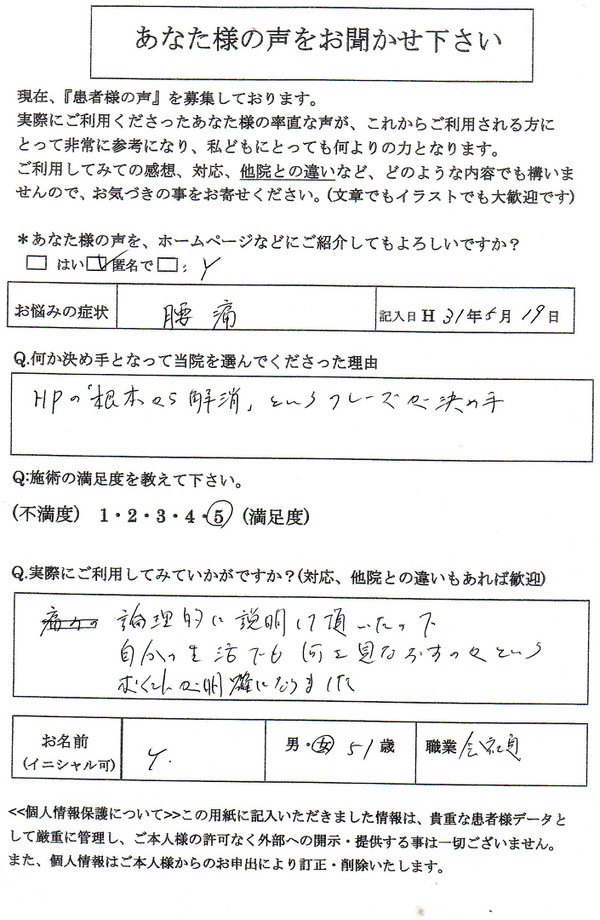 あなた様の声をお聞かせ下さい
現在、『患者様の声』を募集しております。
実際にご利用くださったあなた様の率直な声が、これからご利用される方に
とって非常に参考になり、私どもにとっても何よりの力となります。
ご利用してみての感想、対応、他院との違いなど、どのような内容でも構いま
せんので、お気づきの事をお寄せください。(文章でもイラストでも大歓迎です)
*あなた様の声を、ホームページなどにご紹介してもよろしいですか?
□ はい □ 匿名で □: Y
お悩みの症状 腰痛 記入日 H 31年5月19日
Q.何か決め手となって当院を選んでくださった理由
HPの「根本から解消」というフレーズが決め手
Q:施術の満足度を教えて下さい。
(不満度) 1・2・3・4・5 (満足度)
Q.実際にご利用してみていかがですか?(対応、他院との違いもあれば歓迎)
論理的に説明して頂いたので
自分の生活でも何を見なおすのかという
が明確になりました
お名前 Y. 男・女 51歳 職業 会社員
(イニシャル可)
<<個人情報保護について>>この用紙に記入いただきました情報は、貴重な患者様データと
して厳重に管理し、ご本人様の許可なく外部への開示・提供する事は一切ございません。
また、個人情報はご本人様からのお申出により訂正・削除いたします。